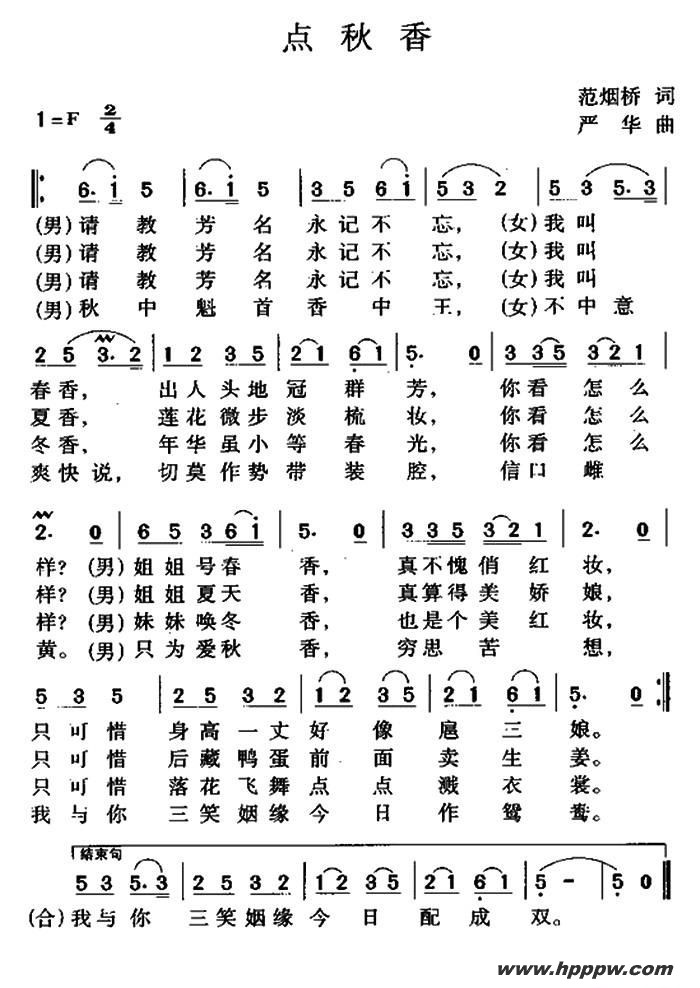 点秋香
范烟桥 词
1=F 2/4
严华 曲
6. i 5 6. i 5 3 5 6 i 5 3 2 5 3 5. 3
(男)请教芳名永记不忘，(女)我叫
(男)请教芳名永记不忘，(女)我叫
(男)请教芳名永记不忘，(女)我叫
(男)秋中魁首香中王，(女)不中意
2 5 3. 2 1 2 3 5 2 1 6 1 5. 0 3 3 5 3 2 1
春香，出人头地冠群芳，你看怎么
夏香，莲花微步淡梳妆，你看怎么
冬香，年华虽小等春光，你看怎么
爽快说，切莫作势带装腔，信口雌
2. 0 6 5 3 6 i 5. 0 3 3 5 3 2 1 2. 0
样？(男)姐姐号春香，真不愧俏红妆，
样？(男)姐姐夏天香，真算得美娇娘，
样？(男)妹妹唤冬香，也是个美红妆，
黄。(男)只为爱秋香，穷思苦想，
5 3 5 2 5 3 2 1 2 3 5 2 1 6 1 5. 0
只可惜身高一丈好像扈三娘。
只可惜后藏鸭蛋前面卖生姜。
只可惜落花飞舞点点溅衣裳。
我与你三笑姻缘今日作鸳鸯。
结束句
5 3 5. 3 2 5 3 2 1 2 3 5 2 1 6 1 5 - 5 0
(合)我与你三笑姻缘今日配成双。
www.hpppw.com